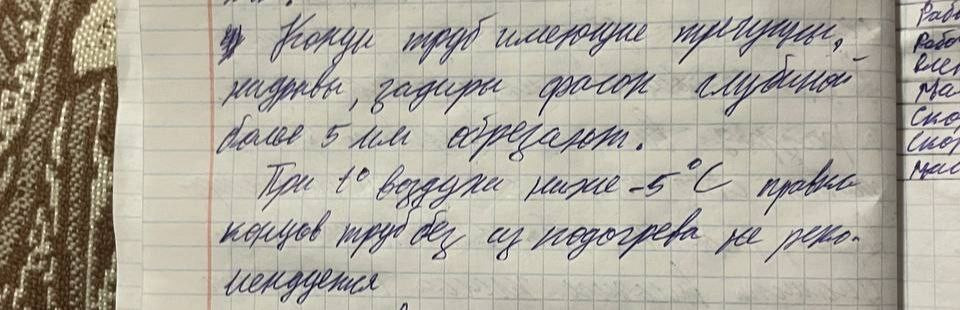 Концы труб имеющие трещины,
надрывы, задиры фасок глубиной
более 5 мм обрезают.
При t° воздуха ниже -5°С правка
концов труб без их подогрева не реко-
мендуется
Рабо
Рабо
Мас
Ско
Скор
Мас